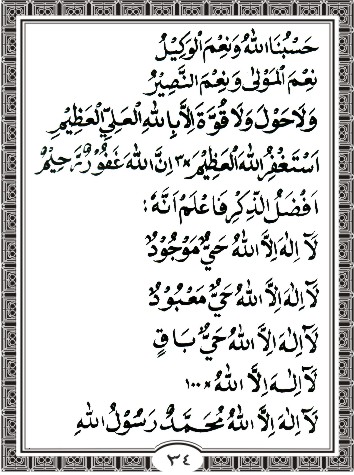 حَسْبُنَا اللهُ وَنِعْمَ الْوَكِيْلُ
نِعْمَ الْمَوْلٰى وَنِعْمَ النَّصِيْرُ
وَلَا حَوْلَ وَلَا قُوَّةَ اِلَّا بِاللهِ الْعَلِيِّ الْعَظِيْمِ
اَسْتَغْفِرُ اللهَ الْعَظِيْمَ ×٣ اِنَّ اللهَ غَفُوْرٌ رَحِيْمٌ
اَفْضَلُ الذِّكْرِ فَاعْلَمْ اَنَّهُ :
لَآ اِلٰهَ اِلَّا اللهُ حَيٌّ مَوْجُوْدٌ
لَآ اِلٰهَ اِلَّا اللهُ حَيٌّ مَعْبُوْدٌ
لَآ اِلٰهَ اِلَّا اللهُ حَيٌّ بَاقٍ
لَآ اِلٰهَ اِلَّا اللهُ ×١٠٠
لَآ اِلٰهَ اِلَّا اللهُ مُحَمَّدٌ رَسُوْلُ اللهِ
٣٤